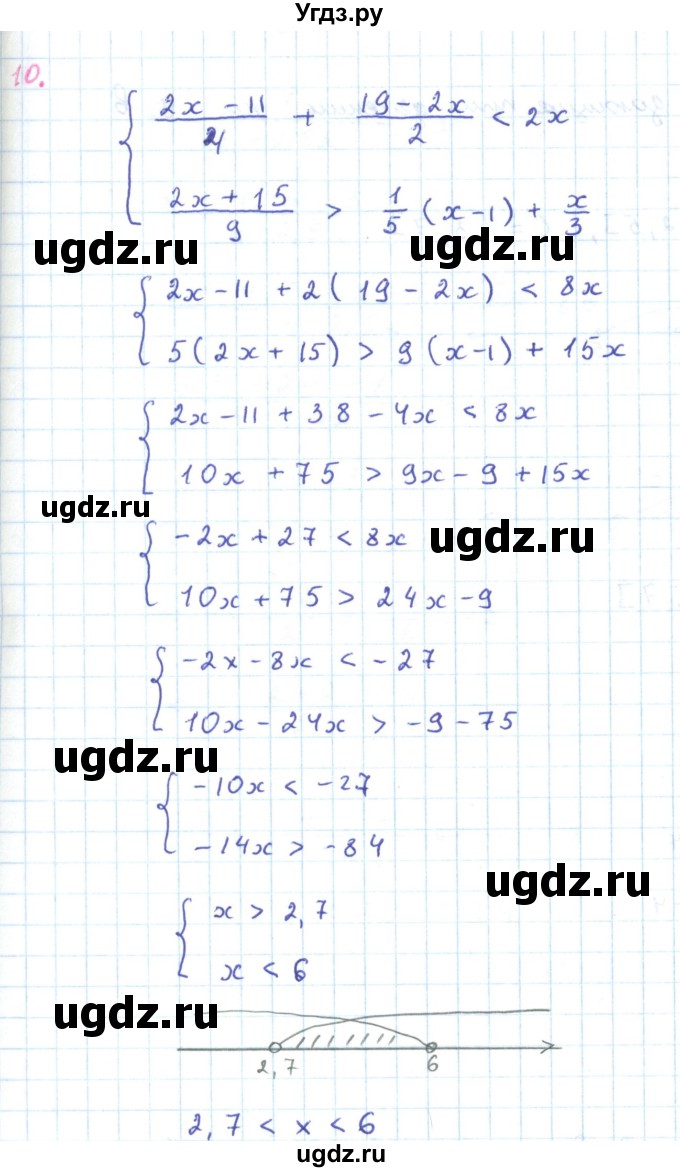 Угдз.ру
10.
{ (2x - 11)/4 + (19 - 2x)/2 < 2x
(2x + 15)/9 > 1/5 (x-1) + x/3
ugdz.ru ugdz.ru
{ 2x - 11 + 2(19 - 2x) < 8x
5(2x + 15) > 9(x-1) + 15x
{ 2x - 11 + 38 - 4x < 8x
10x + 75 > 9x - 9 + 15x
ugdz.ru ugdz.ru
{ -2x + 27 < 8x
10x + 75 > 24x - 9
{ -2x - 8x < -27
10x - 24x > -9 - 75
ugdz.ru
{ -10x < -27
-14x > -84
ugdz.ru
{ x > 2,7
x < 6
ugdz.ru
2,7 6
2,7 < x < 6
ugdz.ru